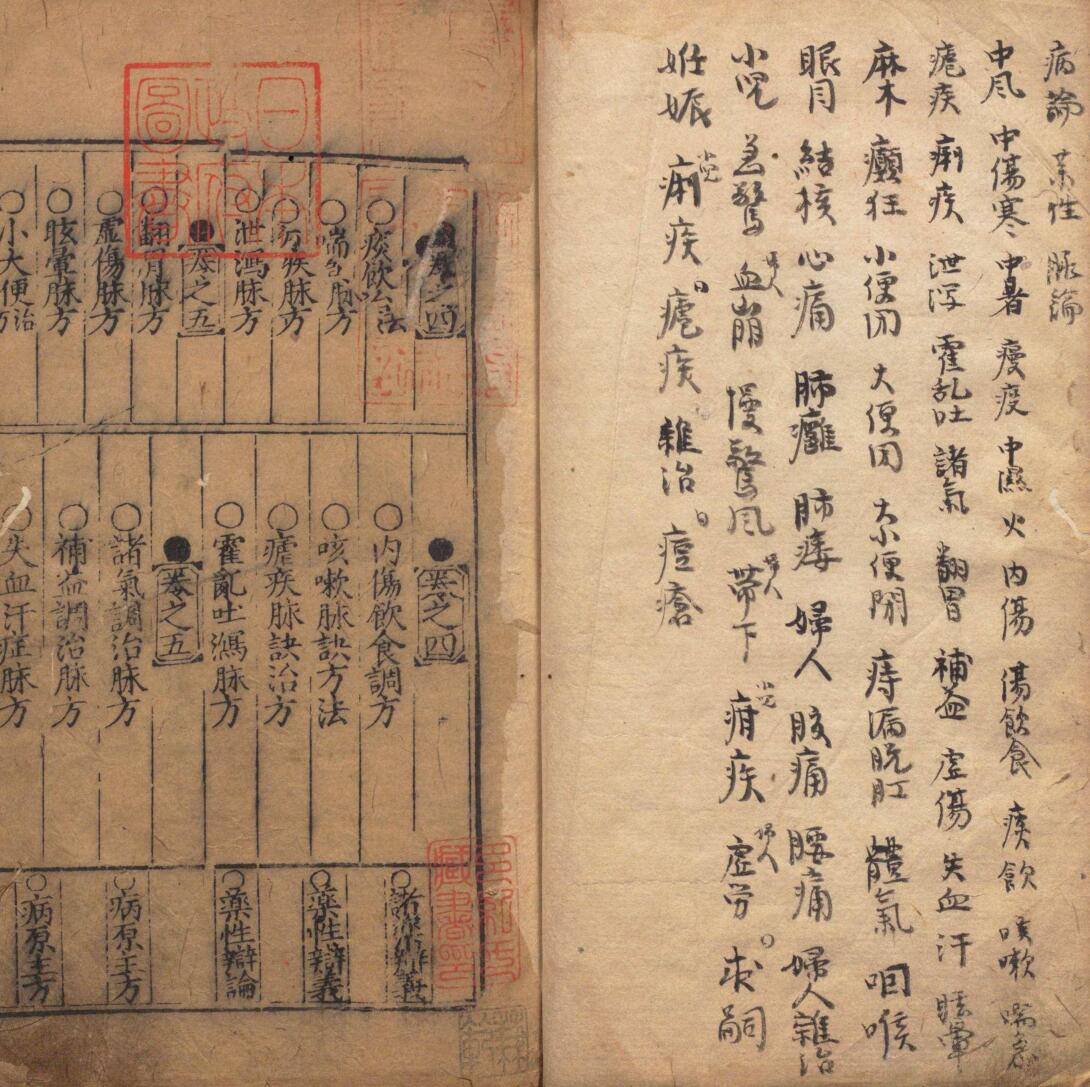 病論 藥性 脈論
中风 中傷寒 中暑 瘦疫 中濕 火 内傷 傷飲食 痰飲 咳嗽 喘急
瘧疾 痢疾 泄泻 霍乱吐 諸氣 翻胃 補益 虚傷 失血 汗 眩暈
麻木 癲狂 小便闭 大便闭 大小便閉 痔漏脱肛 體氣 咽喉
眼目 結核 心痛 肺癰 肺痿 婦人 腹痛 腰痛 婦人雜治
小児 急驚 血崩 慢驚风 帶下 疳疾 虚劳 求嗣
妊娠 痢疾 瘧疾 雜治 痘瘡
卷之四
○痰飲治法
○喘急脉方
○痢疾脉方
○泄瀉脉方
卷之五
○翻胃脉方
○虚傷脉方
○眩暈脉方
○小大便治方
●卷之四
○内傷飲食調方
○咳嗽脉訣方法
○瘧疾脉訣治方
○霍亂吐瀉脉方
●卷之五
○諸氣調治脉方
○補益調治脉方
○失血汗症脉方
○藥性辯義
○藥性辯論
○病原主方
○病原主方
日本
圖書
藏書